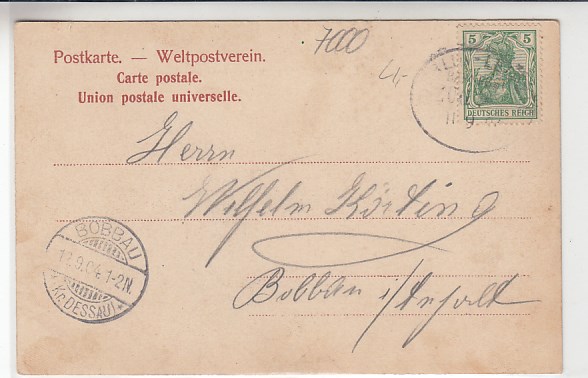 7000
5 5
DEUTSCHES REICH
Postkarte. — Weltpostverein.
Carte postale.
Union postale universelle.
Herrn
Wilhelm Körting
Bobbau i/Anhalt
BOBBAU
12.9.04 1-2N.
(Kr. DESSAU)